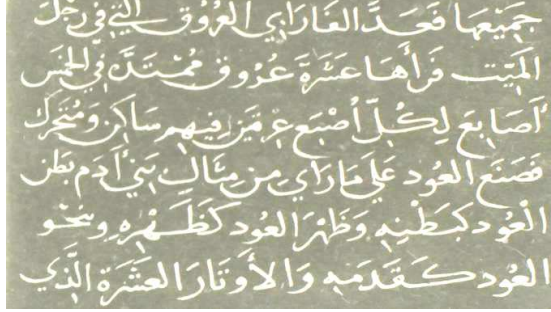 جميعها فعد الفارابي العروق التي في رجل
الميت فرأها عشرة عروق ممتدة في الخمس
أصابع لكل أصبع عرقين فيهم ساكن ومتحرك
فصنع العود على ما رأى من مثال بني آدم بطن
العود كبطنه وظهر العود كظهره ونحو
العود كقدمه والأوتار العشرة الذي